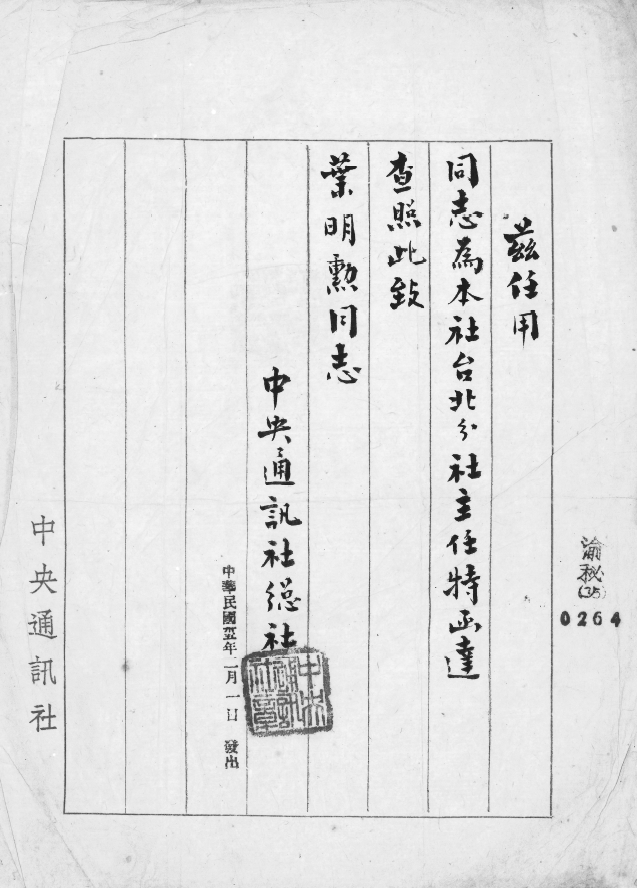 渝秘(35)
0264
茲任用
同志為本社台北分社主任特函達
查照此致
葉明勲同志
中央通訊社總社
中華民國 年二月一日 發出
中央通訊社